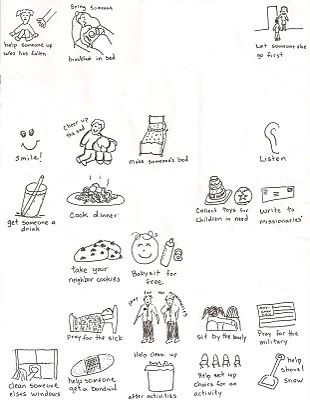 help someone up
who has fallen
Bring someone
breakfast in bed
Let someone else
go first
smile!
Cheer up
the sad
make someone's bed
Listen
get someone a
drink
Cook dinner
Collect toys for
children in need
write to
missionaries
take your
neighbor cookies
Babysit for
free
Pray for the sick
Pray for the
Sit by the lonely
Pray for the
military
clean someone
elses windows
help someone
get a bandaid
Help clean up
after activities
Help set up
chairs for an
activity
help
shovel
snow